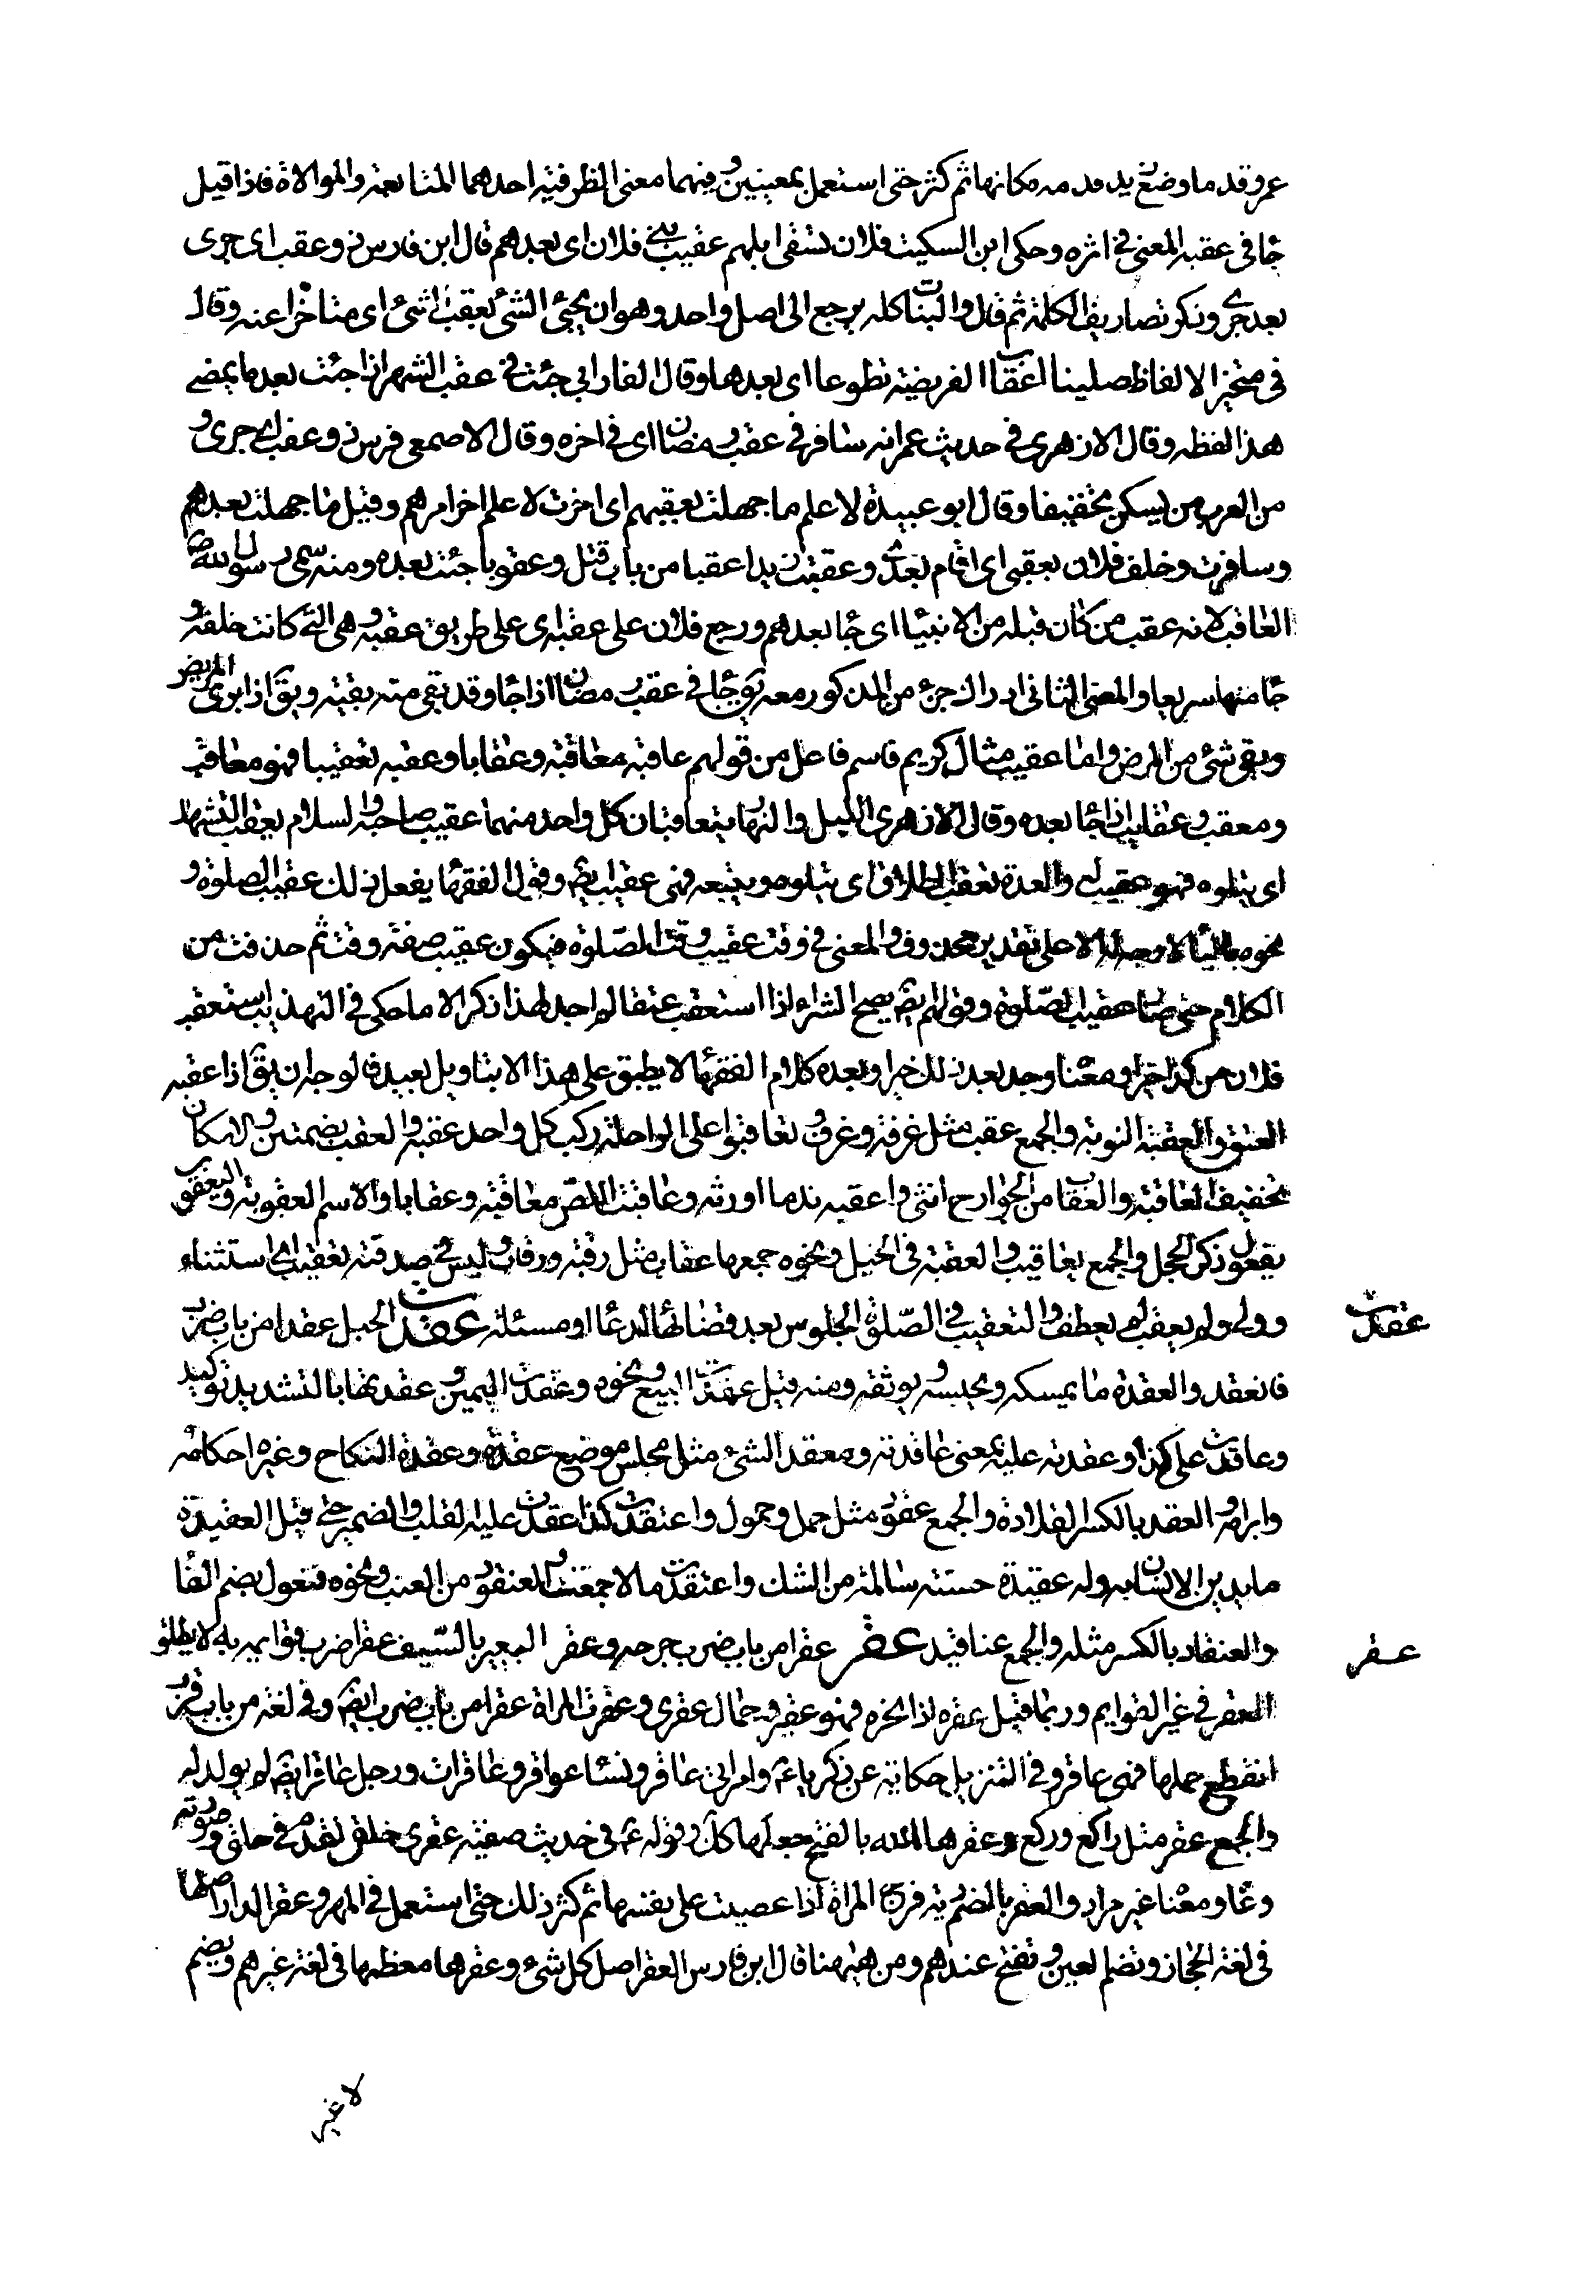 عمرو قدما وضع زيد قدمه مكانها ثم كثر حتى استعمل بمعنيين وفيهما معنى الظرفية احدهما المتابعة والموالاة فاذا قيل
جا في عقبه المعنى في اثره وحكى ابن السكيت فلان تسقى ابلهم عقيب بني فلان اى بعدهم قال ابن فارس فرس ذو عقب اى جرى
بعد جرى وذكر تصاريف الكلمة ثم قال والباب كله يرجع الى اصل واحد وهو ان يجيئ الشئ بعقب الشئ اى متاخرا عنه وقال
في متخير الالفاظ صلينا اعقاب الفريضة تطوعا اى بعدها وقال الفارابي جئت في عقب الشهر اذا جئت بعد ما يمضى
هذا لفظه وقال الازهرى في حديث عمر انه سافر في عقب رمضان اى في اخره وقال الاصمعي فرس ذو عقب اى جرى و
من العرب من يسكن تخفيفا وقال ابو عبيدة لا علم ما جهلت بعقبهم اى اخرت لا علم اخر امرهم وقيل ما جهلت بعدهم
وسافرت وخلف فلان بعقبى اى اقام بعدى وعقبت زيدا عقبا من باب قتل وعقوبا جئت بعده ومنه سمى رسول الله ص
العاقب لانه عقب من كان قبله من الانبيا اى جا بعدهم ورجع فلان على عقبه اى على طريق عقبه وهى التى كانت خلفه و
جا منها سريعا والمعنى الثانى ادراك جزء من المذكور معه يق جا في عقب رمضان اذا جا وقد بقى منه بقية ويق اذا برى المريض
وبقى شئ من المرض واما عقيب مثال كريم فاسم فاعل من قولهم عاقبه معاقبة وعقابا وعقبه تعقيبا فهو معاقب
ومعقب وعقيب اذا جا بعده وقال الازهرى الليل والنهار يتعاقبان كل واحد منهما عقيب صاحبه والسلام يعقب التشهد
اى يتلوه فهو عقيب له والعدة تعقب الطلاق اى تتلوه وتتبعه فهى عقيب ايض وقول الفقها يفعل ذلك عقيب الصلوة و
نحوه باليا لا وجه له الا على تقدير محذوف والمعنى في وقت عقيب وقت الصلوة فيكون عقيب صفة وقت ثم حذفت من
الكلام حتى صار عقيب الصلوة وقولهم ايض يصح الشراء اذا استعقب عتقا لم اجد لهذا ذكرا الا ما حكى في التهذيب استعقب
فلان من كذا خيرا ومعنا وجد بعد ذلك خيرا وبعده كلام الفقها لا يطبق على هذا الا بتاويل بعيد فالوجه ان يق اذا عقبه
العتق والعقبة النوبة والجمع عقب مثل غرفة وغرف وتعاقبوا على الراحلة ركب كل واحد عقبة والعقب بضمتين والاسكان
تخفيف العاقبة والعقاب من الجوارح انثى واعقبه ندما اورثه وعاقبت اللص معاقبة وعقابا والاسم العقوبة واليعقوب
يفعول ذكر الحجل والجمع يعاقيب والعقبة في الجبل ونحوه جمعها عقاب مثل رقبة ورقاب وليس في صدقته تعقيب اى استثناء
وولى ولم يعقب لم يعطف والتعقيب في الصلوة الجلوس بعد قضائها لدعا او مسئلة عقدت الحبل عقدا من باب ضرب
فانعقد والعقدة ما يمسكه ويحبسه ويوثقه ومنه قيل عقدت البيع ونحوه وعقدت اليمين وعقدتها بالتشديد توكيد
وعاقدت على كذا وعقدته عليه بمعنى عاقدته ومعقد الشئ مثل مجلس موضع عقده وعقدة النكاح وغيره احكامه
وابرامه والعقد بالكسر القلادة والجمع عقود مثل حمل وحمول واعتقدت كذا عقدت عليه القلب والضمير حتى قيل العقيدة
ما يدين الانسان به وله عقيدة حسنة سالمة من الشك واعتقدت مالا جمعته والعنقود من العنب ونحوه فنعول بضم الفا
والعنقاد بالكسر مثله والجمع عناقيد عقر عقرا من باب ضرب جرحه وعقر البعير بالسيف عقرا ضرب قوايمه به لا يطلق
العقر في غير القوايم وربما قيل عقره اذا نحره فهو عقير وجمال عقرى وعقرت المراة عقرا من باب ضرب ايض وفي لغة من باب قرب
انقطع حملها فهى عاقر وفي التنزيل حكاية عن زكريا ع وامراتى عاقر ونسا عواقر وعاقرات ورجل عاقر ايض لم يولد له
والجمع عقر مثل راكع وركع وعقرها الله بالفتح جعلها كك وقوله ع في حديث صفية عقرى حلقى تقدم في حلق وصورته
دعا ومعنا غير مراد والعقر بالضم دية فرج المراة اذا غصبت على نفسها ثم كثر ذلك حتى استعمل في المهر وعقر الدار اصلها
في لغة الحجاز وتضم العين وتفتح عندهم ومن ههنا قال ابن فارس العقر اصل كل شئ وعقرها معظمها في لغة غيرهم ويضم
لا غير
عقدت
عقر